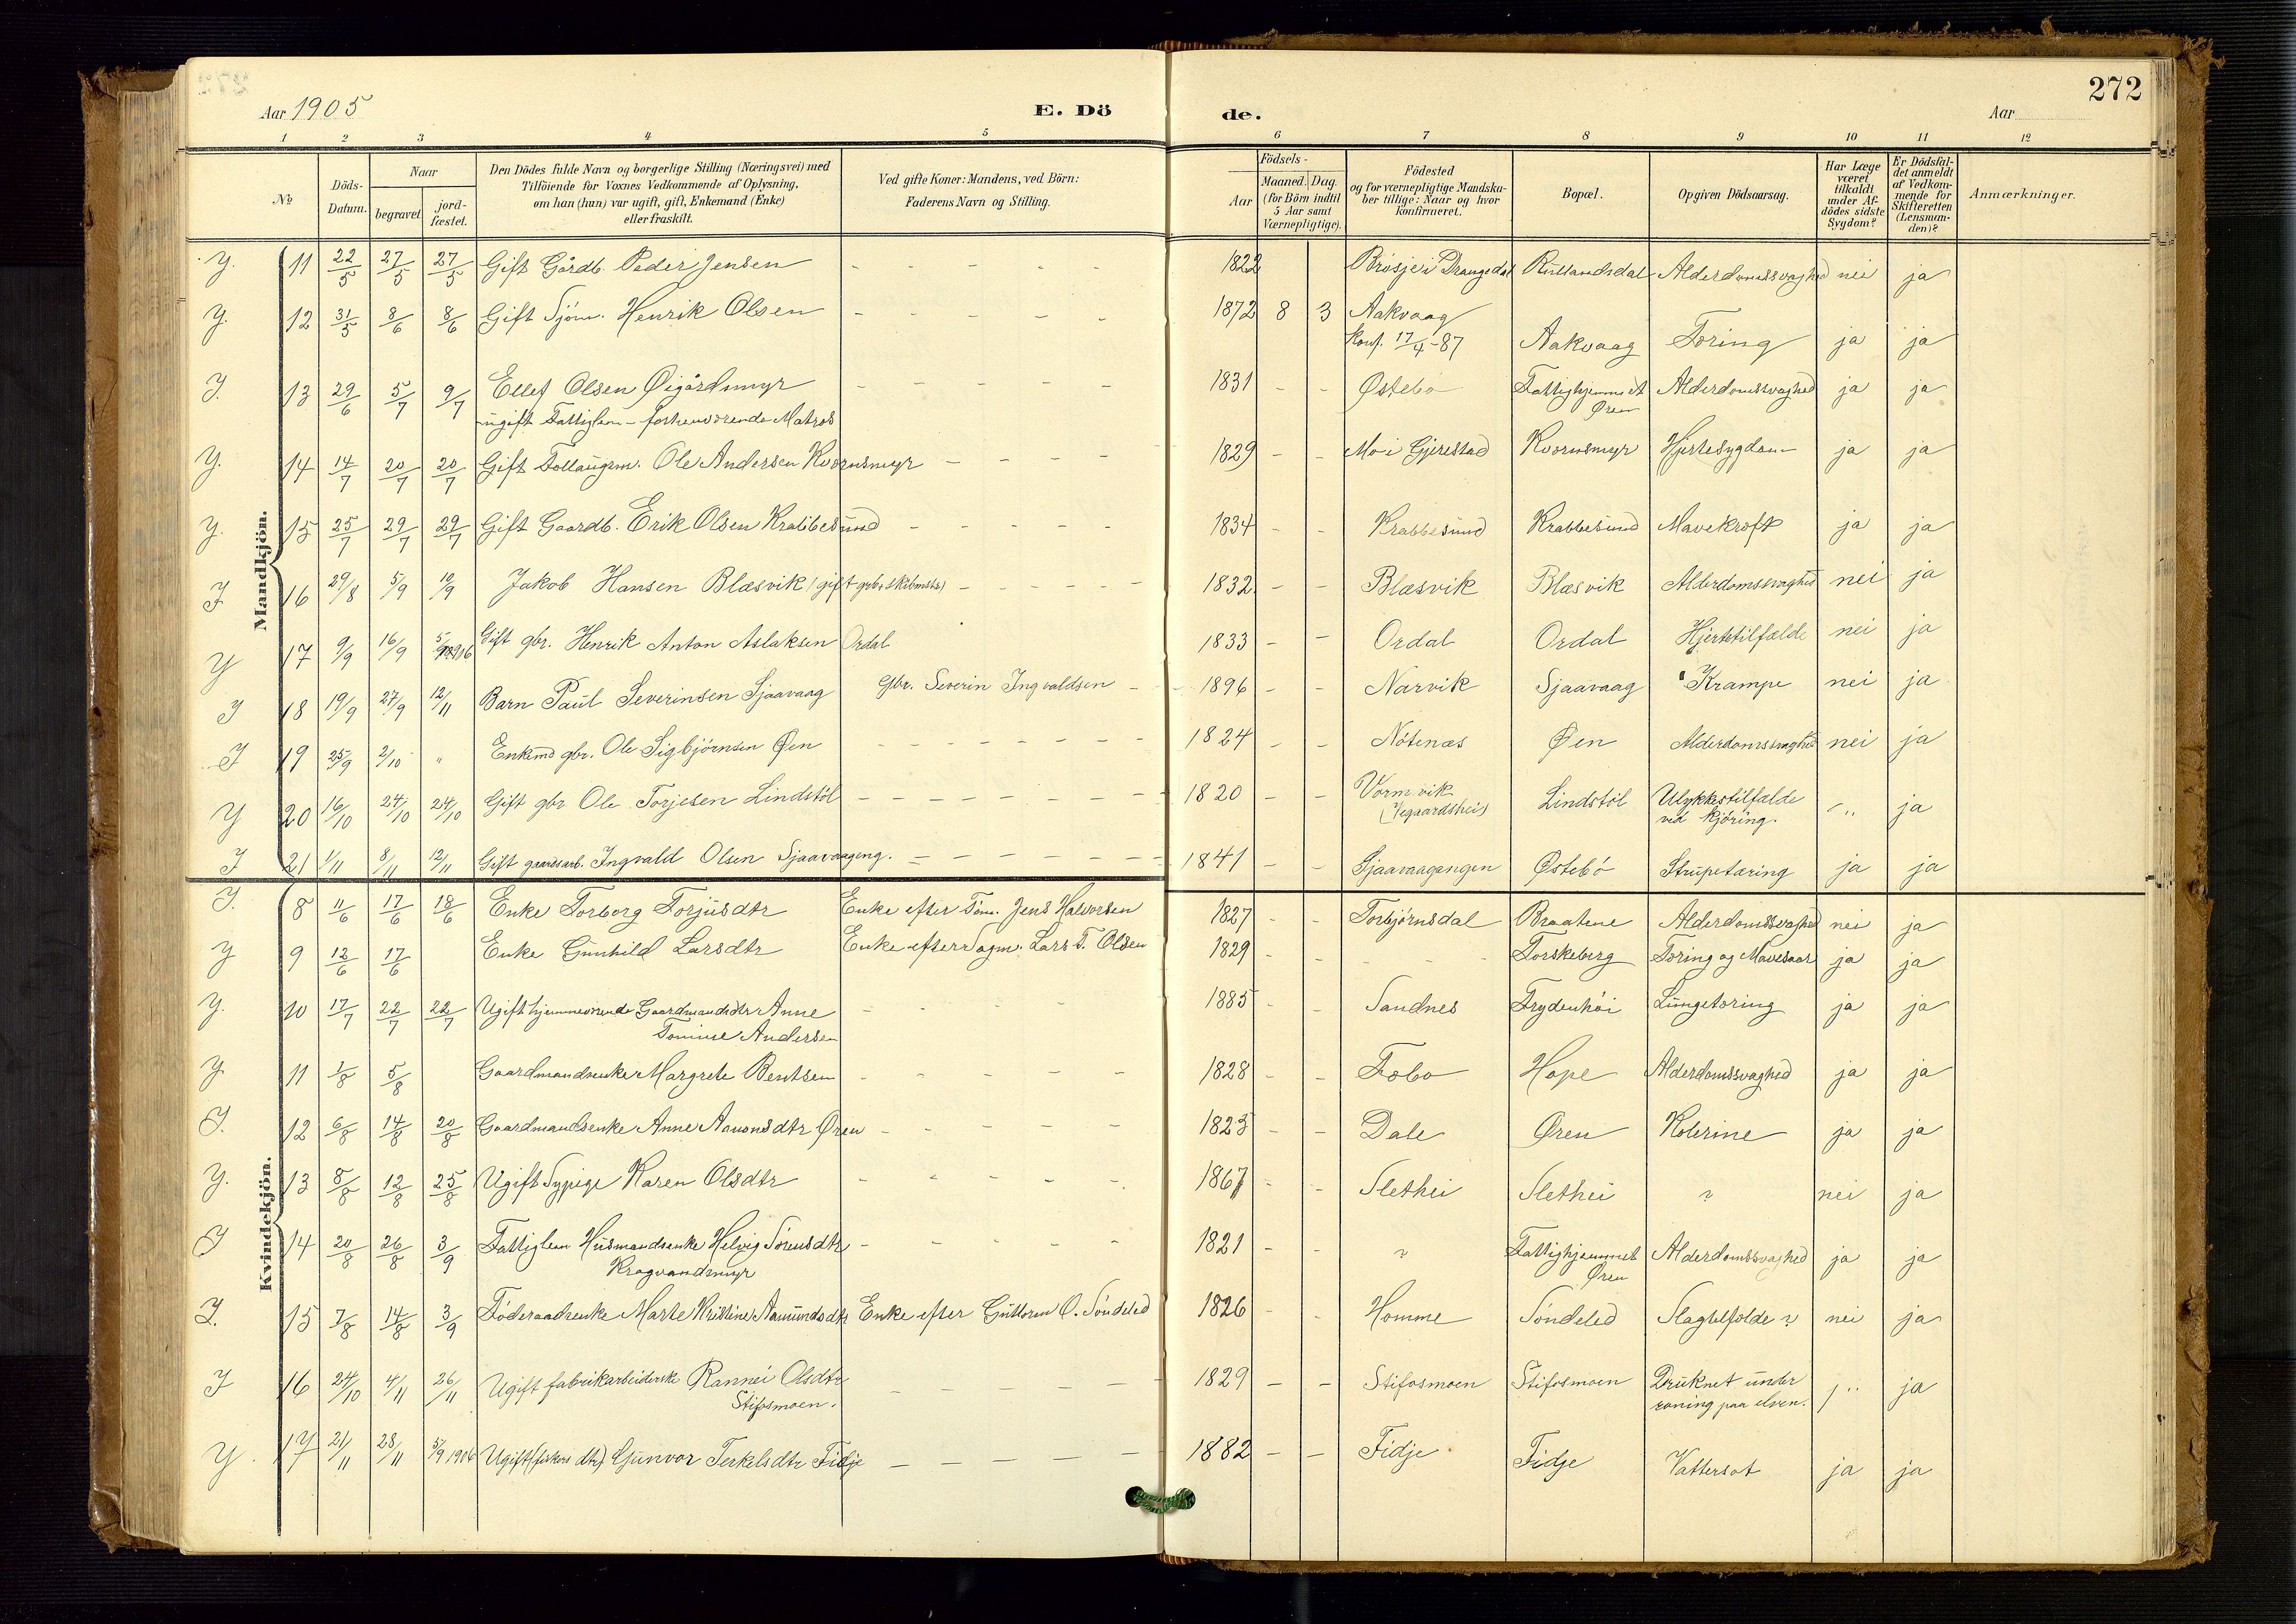 272
Aar 1905 E. Dö de. Aar
1 2 3 4 5 6 7 8 9 10 11 12
No
Döds-Datum.
Naar
begravet.
jord-fæstet.
Den Dödes fulde Navn og borgerlige Stilling (Næringsvei) med
Tilföiende for Voxnes Vedkommende af Oplysning,
om han (hun) var ugift, gift, Enkemand (Enke)
eller fraskilt.
Ved gifte Koner: Mandens, ved Börn:
Faderens Navn og Stilling.
Födsels-
Aar
Maaned. Dag.
(for Börn indtil
5 Aar samt
Værnepligtige).
Födested
og for værnepligtige Mandska-
ber tillige: Naar og hvor
konfirmeret.
Bopæl.
Opgiven Dödsaarsag.
Har Læge
været
tilkaldt
under Af-
dödes sidste
Sygdom?
Er Dödsfal-
det anmeldt
af Vedkom-
mende for
Skifteretten
(Lensman-
den)?
Anmærkninger.
Mandkjön.
Y. 11 22/5 27/5 27/5 Gift Gårdb. Peder Jensen - - - - - 1822 Brøsje i Drangedal Rullandsdal Alderdomssvaghed nei ja
Y. 12 31/5 8/6 8/6 Gift Sjöm. Henrik Olsen - - - - - 1872 8 3 Aakvaag
Konf. 17/4-87 Aakvaag Tøring ja ja
Y. 13 29/6 5/7 9/7 Ellef Olsen Øigårdsmyr - - - - - 1831 - - Østebø Fattighjemmet Alderdomssvaghed ja ja
ugift Fattiglem - forhenværende Matros Øren
Y. 14 14/7 20/7 20/7 Gift Føllaugsm. Ole Andersen Kværnsmyr - - - - 1829 - - Mo i Gjerestad Kværnsmyr Hjertesygdom ja ja
Y. 15 25/7 29/7 29/7 Gift Gaardb. Erik Olsen Krabbesund - - - - 1834 - - Krabbesund Krabbesund Mavekræft ja ja
Y 16 29/8 5/9 10/9 Jakob Hansen Blæsvik (gift gbr, skibmstr) - - - - - 1832 - - Blæsvik Blæsvik Alderdomssvaghed nei ja
Y 17 9/9 16/9 5/9 1906 Gift gbr. Henrik Anton Aslaksen Ordal 1833 - - Ordal Ordal Hjertetilfælde nei ja
Y 18 19/9 27/9 12/11 Barn Paul Severinsen Sjaavaag Gbr. Severin Ingvaldsen - 1896 - - Narvik Sjaavaag Krampe nei ja
Y 19 25/9 2/10 " Enkemd gbr. Ole Sigbjörnsen Øen - - - - - - - 1824 - - Nötenæs Øen Alderdomssvaghed nei ja
Y 20 16/10 24/10 24/10 Gift gbr Ole Torjesen Lindstöl - - - - - - - 1820 - - Vormvik Lindstöl Ulykkestilfælde " ja
(Vegaardshei) ved kjöring.
Y 21 1/11 8/11 12/11 Gift gaardsarb. Ingvald Olsen Sjaavaageng. - - - - - - 1841 - - Sjaavaagengen Østebö Strupetæring ja ja
Kvindekjön.
Y. 8 11/6 17/6 18/6 Enke Torborg Torjusdtr Enke efter Töm. Jens Halvorsen 1827 - - Torbjörnsdal Braatene Alderdomssvaghed nei ja
Y 9 12/6 17/6 Enke Gunhild Larsdtr Enke efter Sagm. Lars T. Olsen 1829 - - - - Torskeberg Tæring og Mavesaar ja ja
Y. 10 17/7 22/7 22/7 Ugift hjemmeværende Gaardmandsdtr Anne - - - - 1885 - - Sandnes Frydenhöi Lungetæring ja ja
Tomine Andersen
Y 11 1/8 5/8 Gaardmandsenke Margrete Bentsen - - - - - 1828 - - Fæbo Hope Alderdomssvaghed ja ja
Y. 12 6/8 14/8 20/8 Gaardmandsenke Anne Aanonsdtr Øren - - - - - 1823 - - Dale Øren Kolerine ja ja
Y. 13 8/8 12/8 25/8 Ugift Sypige Karen Olsdtr - - - - - 1867 - - Slethei Slethei ? nei ja
Y 14 20/8 26/8 3/9 Fattiglem Husmandsenke Helvig Sörensdtr - - - - - 1821 - - ? Fattighjemmet Alderdomssvaghed ja ja
Kragvandsmyr Øren
Y. 15 7/8 14/8 3/9 Föderaadsenke Marte Kristine Aamundsdtr Enke efter Guttorm O. Söndeled 1826 - Homme Söndeled Slagtilfælde ? nei ja
Y 16 24/10 4/11 26/11 Ugift fabrikarbeiderske Rannei Olsdtr - - - - - 1829 - - Stifosmoen Stifosmoen Druknet under " ja
Stifosmoen. roning paa elven.
Y. 17 21/11 28/11 5/9 1906 Ugift (fiskers dtr) Gunvor Terkelsdtr Fidje - - - - - 1882 - - Fidje Fidje Vattersot ja ja